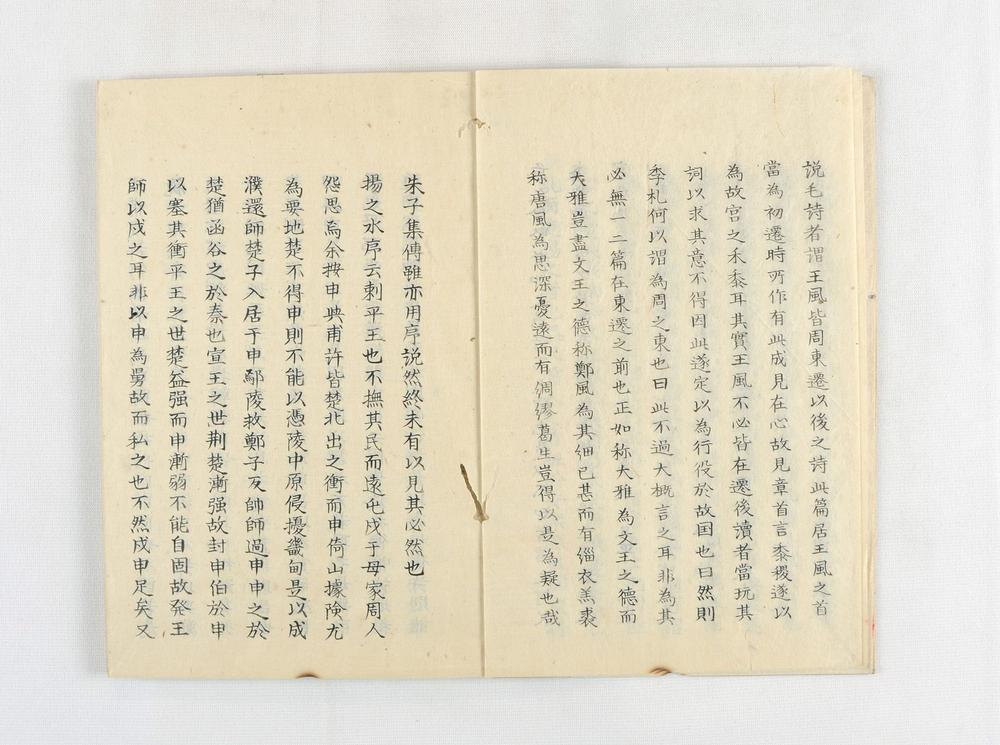 説毛詩者謂王風皆周東遷以後之詩此篇居王風之首
當為初遷時所作有此成見在心故見章首言黍稷遂以
為故宮之禾黍耳其實王風不必皆在遷後讀者當玩其
詞以求其意不得因此遂定以為行役於故国也曰然則
季札何以謂為周之東也曰此不過大概言之耳非為其
必無一二篇在東遷之前也正如称大雅為文王之德而
大雅豈盡文王之德称鄭風為其細已甚而有緇衣羔裘
称唐風為思深憂遠而有綢繆葛生豈得以是為疑也哉
朱子集傳雖亦用序説然終未有以見其必然也
揚之水序云刺平王也不撫其民而遠屯戍于母家周人
怨思焉余按申與甫許皆楚北出之衝而申倚山據険尤
為要地楚不得申則不能以憑陵中原侵擾畿甸是以成
濮還師楚子入居于申鄢陵救鄭子反帥師過申申之於
楚猶函谷之於秦也宣王之世荆楚漸强故封申伯於申
以塞其衝平王之世楚益强而申漸弱不能自固故発王
師以戍之耳非以申為舅故而私之也不然戍申足矣又